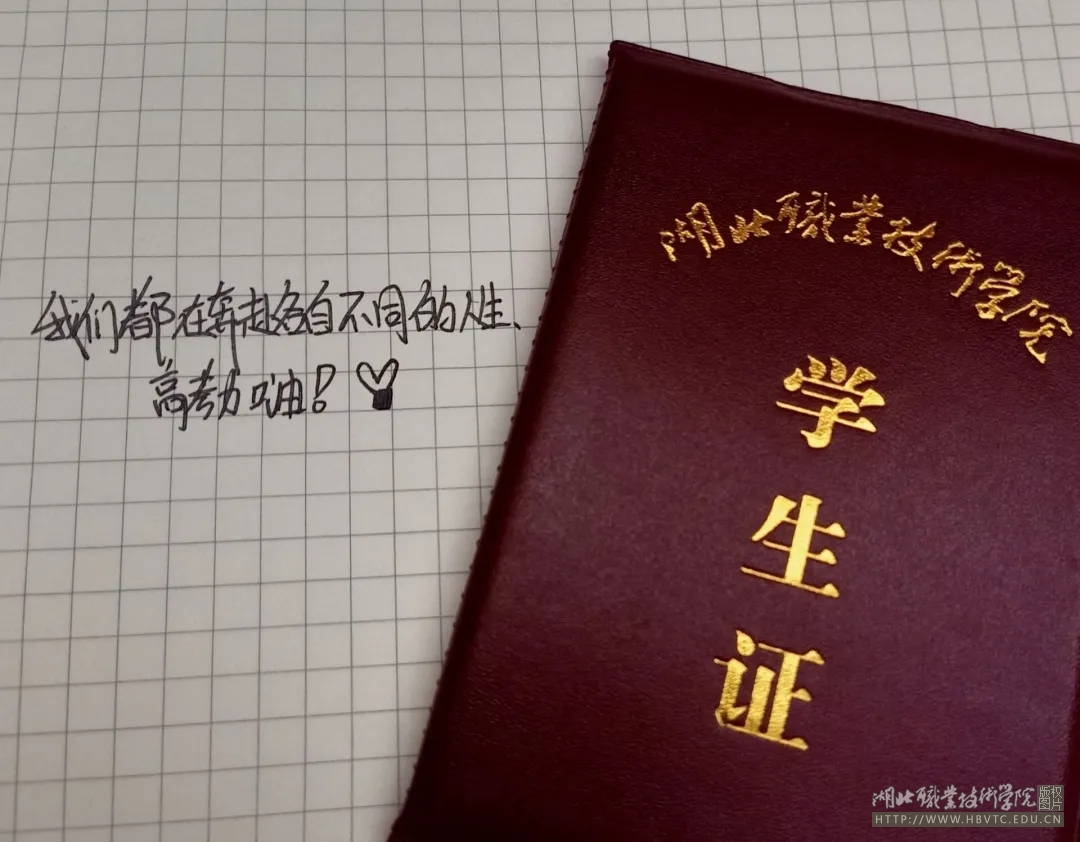 我们都在奔赴各自不同的人生、
高考加油!
湖北職業技術学院
学生证
湖北職業技術学院
版权图片
HTTP://WWW.HBVTC.EDU.CN